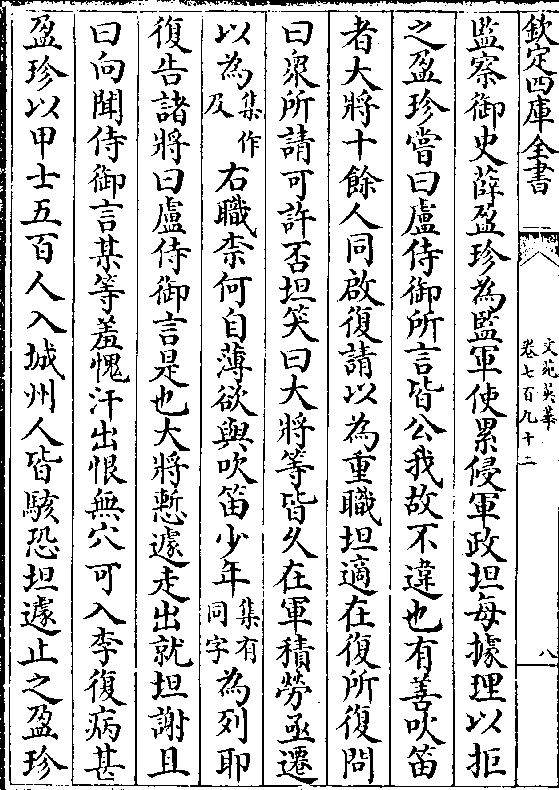 欽定四庫全書
文苑英華
卷七百九十二
八
監察御史薛盈珍為監軍使累侵軍政坦每據理以拒
之盈珍嘗曰盧侍御所言皆公我故不違也有善吹笛
者大將十餘人同啟復請以為重職坦適在復所復問
曰衆所請可許否坦笑曰大將等皆久在軍積勞亟遷
以為集作及右職柰何自薄欲與吹笛少年集有同字為列耶
復告諸將曰盧侍御言是也大將慙遽走出就坦謝且
曰向聞侍御言某等羞愧汗出恨無穴可入李復病甚
盈珍以甲士五百人入城州人皆駭恐坦遽止之盈珍